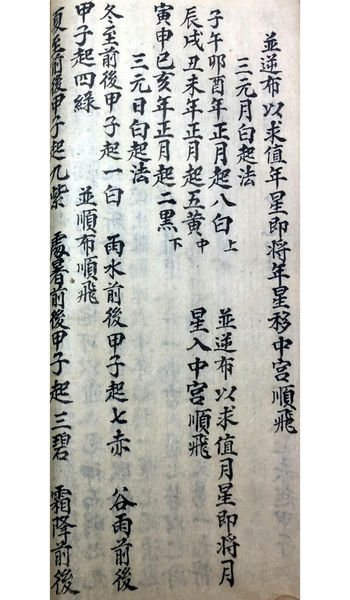 並逆布以求值年星即將年星移中宮順飛
三元月白起法
子午卯酉年正月起八白上
辰戌丑未年正月起五黄中
寅申巳亥年正月起二黑下
並逆布以求值月星即將月
星入中宮順飛
三元日白起法
冬至前後甲子起一白 雨水前後甲子起七赤 谷雨前後
甲子起四綠 並順布順飛
夏至前後甲子起九紫 處暑前後甲子起三碧 霜降前後